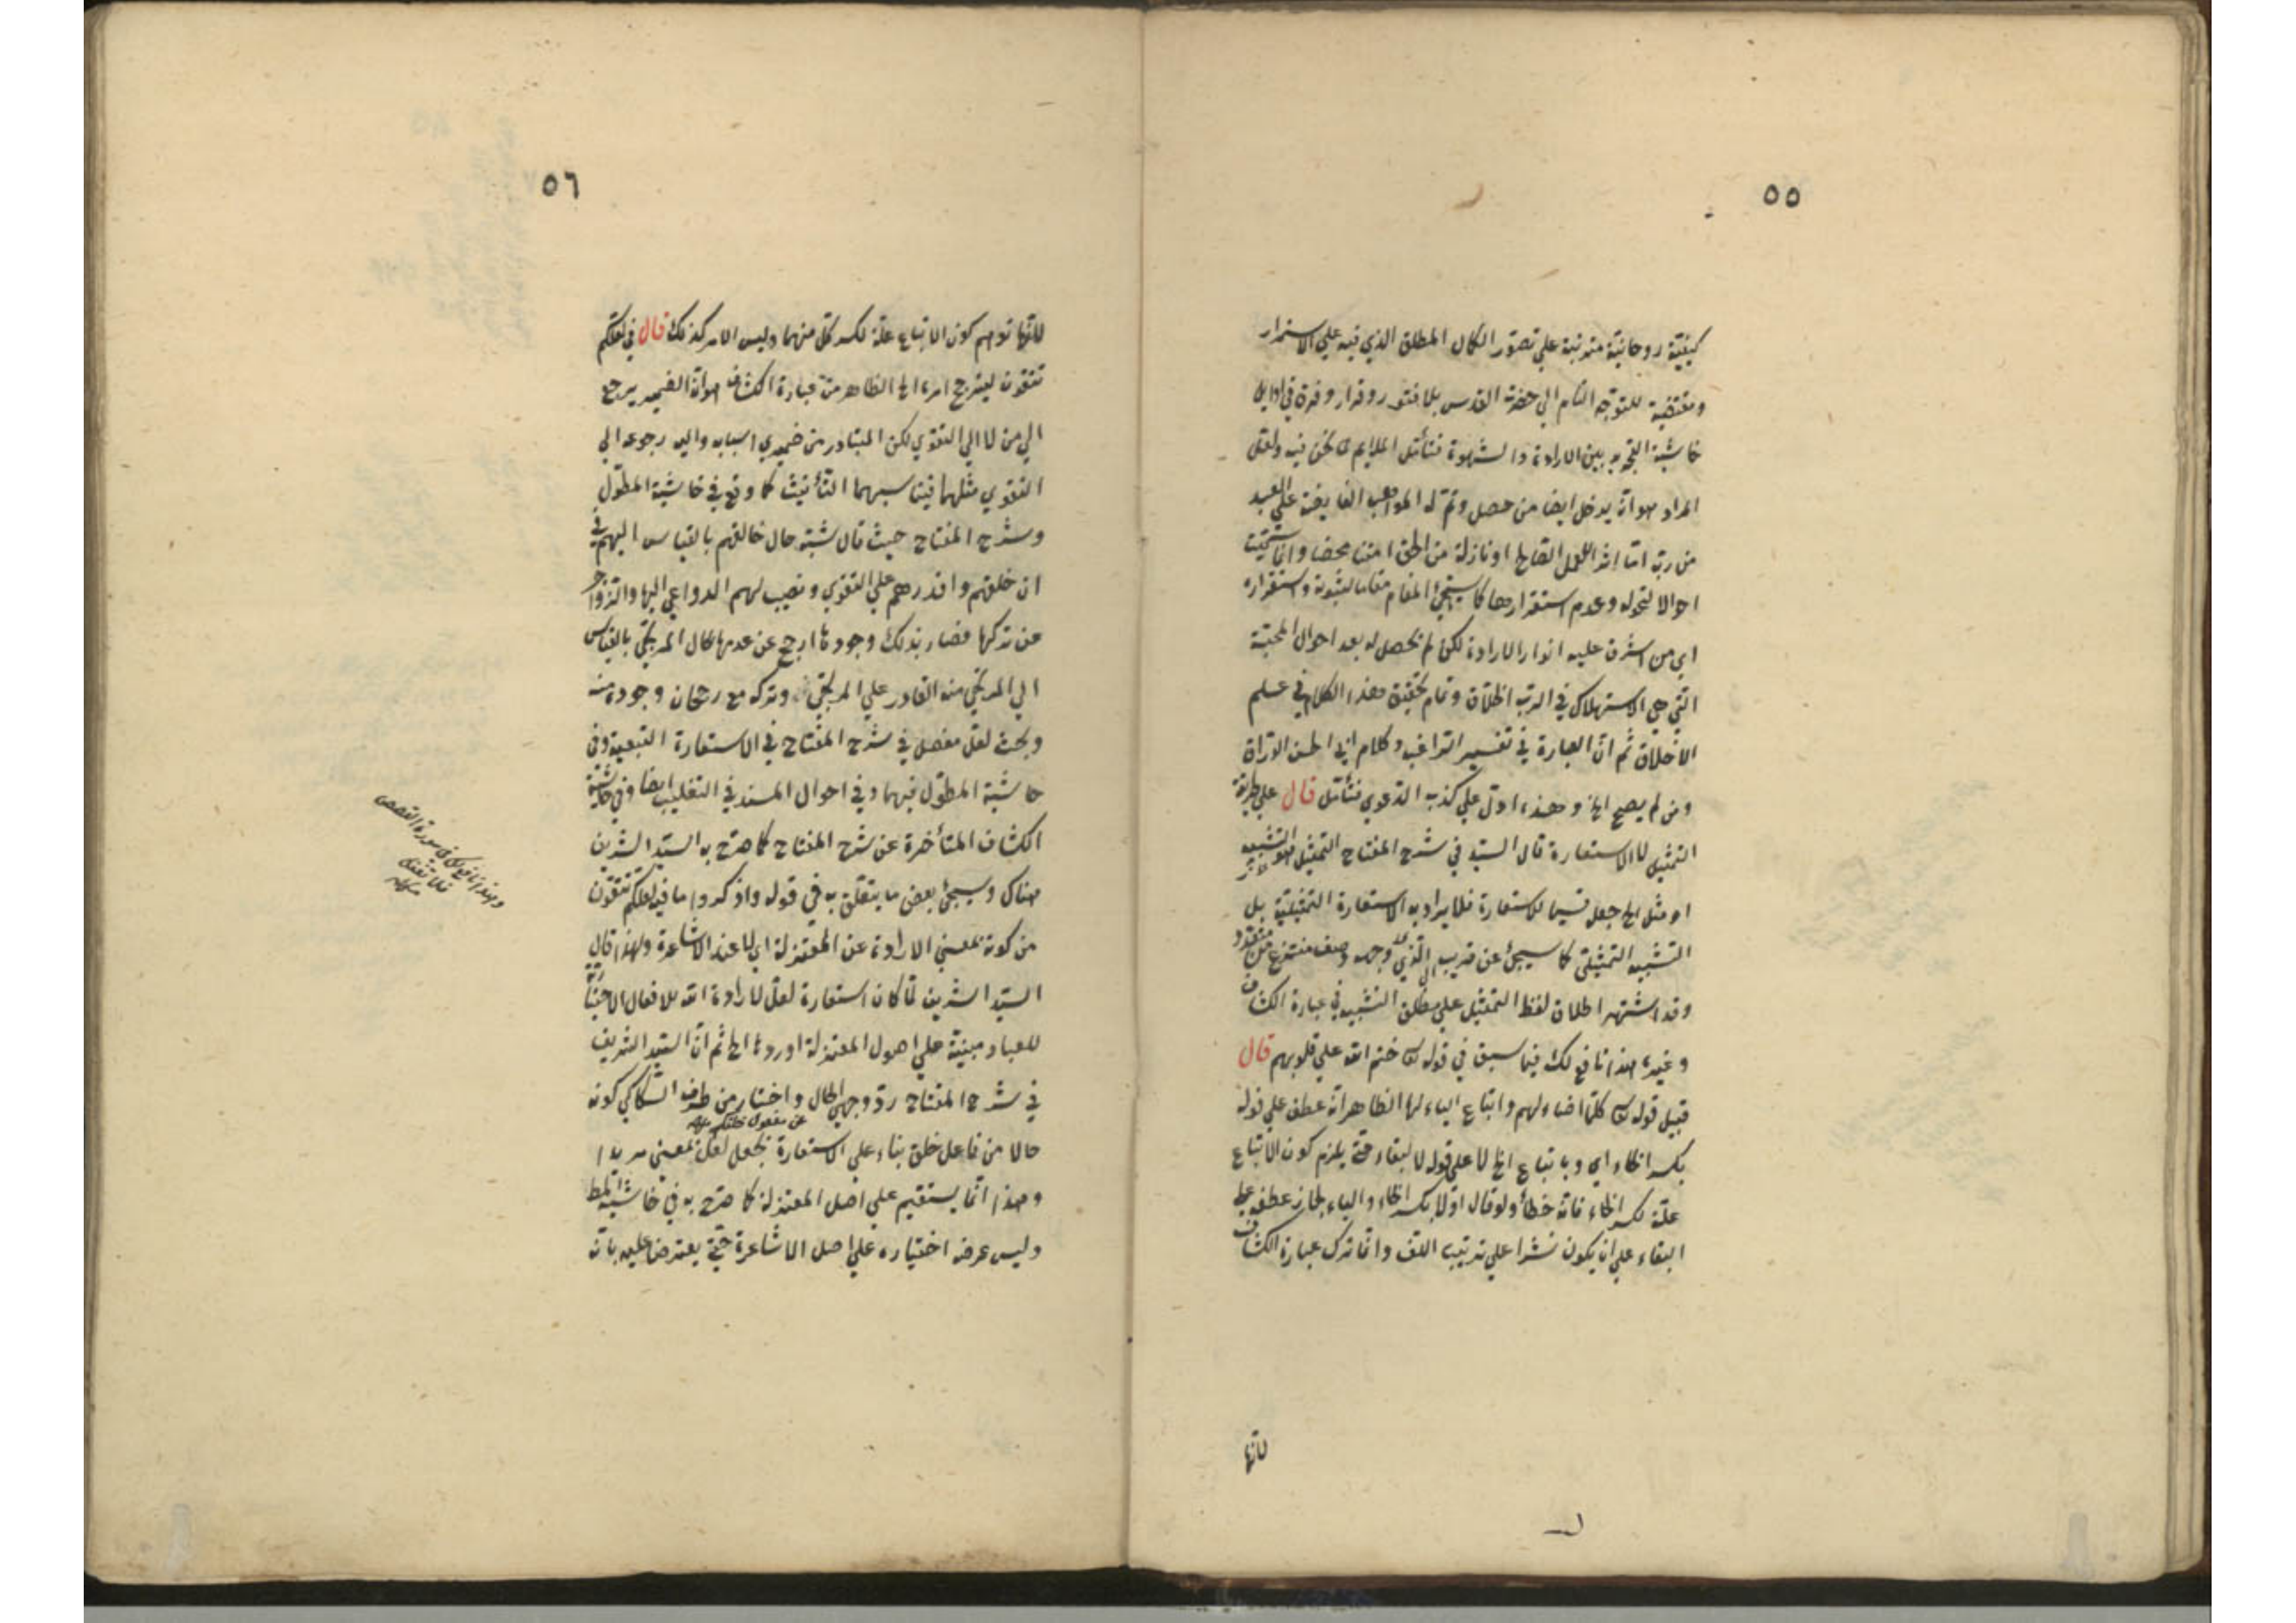 ٥٥
كيفية روحانية مترتبة على تصور الكمال المطلق الذي فيه على الاستمرار
ومقتضية للتوجه التام الي حضرة القدس بلا فتور وفرار وفرق في اوايل
حاشية التجريد بين الارادة والشهوة فتأمل الملايم نحن فيه ولعل
المراد هو انه يدخل ايضا من حصل وتم له المواهب الفايضة على العبد
من ربه اما اثر العمل الصالح او نازلة من الحق امتنانا محضا وانما سميت
احوالا لتحوله وعدم استقرارها كما سيجئ المقام مقاما لثبوته واستقراره
اي من اشرق عليه انوار الارادة لكن لم يحصل له بعد احوال المحبة
التي هي الاستهلاك في الرب اطلاق وتمام تحقيق هذا الكلام في علم
الاخلاق ثم ان العبارة في تفسير الراغب وكلام ابي الحسن الوراق
ومن لم يصح الخ وهذا ادل علي كذب الدعوي فتأمل قال علي طريقة
التمثيل لا الاستعارة قال السيد في شرح المفتاح التمثيل هو التشبيه
او مثل الخ جعل قسيما للاستعارة فلا يراد به الاستعارة التمثيلية بل
التشبيه التمثيلي كما سيجئ عن قريب الذي وجهه وصف منتزع من متعدد
وقد اشتهر اطلاق لفظ التمثيل علي مطلق التشبيه في عبارة الكشاف
وغيره هذا نافع لك فيما سبق في قوله تعالى ختم الله علي قلوبهم قال
قبيل قوله تعالى كلما اضاء لهم واتباع الياء لها الظاهر انه عطف علي قوله
بكسر الخاء اي وباتباع الخ لا على قوله لالتقاء حتى يلزم كون الاتباع
علة لكسر الخاء فانه خطأ ولو قال اولا بكسر الخاء والياء لجاز عطفه على
البقاء على ان يكون نشرا علي ترتيب اللف وانما ترك عبارة الكشاف
لانها
٥٦
لانها توهم كون الاتباع علة لكسر كل منهما وليس الامر كذلك قال في لعلكم
تتقون ليترجح امره الخ الظاهر من عبارة الكشاف هو ان الضمير يرجع
الي من لا الي التقوي لكن المتبادر من ضميري اسبابه واليه رجوعه الي
التقوي مثلهما فيناسبهما التأنيث كما وقع في حاشية المطول
وشرح المفتاح حيث قال شبه حال خالقهم بالقياس اليهم في
ان خلقهم واقدرهم علي التقوي ونصب لهم الدواعي اليها والزواجر
عن تركها فصار بذلك وجودها ارجح عن عدمها بحال المرتجي بالقياس
الي المرتجي منه القادر علي المرتجي وتركه مع رجحان وجوده منه
وبحث لعل مفصل في شرح المفتاح في الاستعارة التبعية وفي
حاشية المطول فيهما وفي احوال المسند في التغليب ايضا وفي حاشية
الكشاف المتأخرة عن شرح المفتاح كما صرح به السيد الشريف
هناك وسيجئ بعض ما يتعلق به في قوله واذكروا ما فيه لعلكم تتقون
من كونه بمعني الارادة عن المعتزلة اي لا عند الاشاعرة ولهذا قال
السيد الشريف لما كان استعارة لعل لارادة الله للافعال الاختيارية
للعباد مبنية علي اصول المعتزلة اوردها الخ ثم ان السيد الشريف
في شرح المفتاح رد وجهي الحال واختار من طرف السكاكي كونه
عن مفعول خلقكم منه
حالا من فاعل خلق بناء علي الاستعارة بجعل لعل بمعني مريدا
وهذا انما يستقيم علي اصل المعتزلة كما صرح به في حاشية المط
وليس غرضه اختياره علي اصل الاشاعرة حتي يعترض عليه بانه
وهذا نافع لك في سورة القصص
فلا تغفل
منه